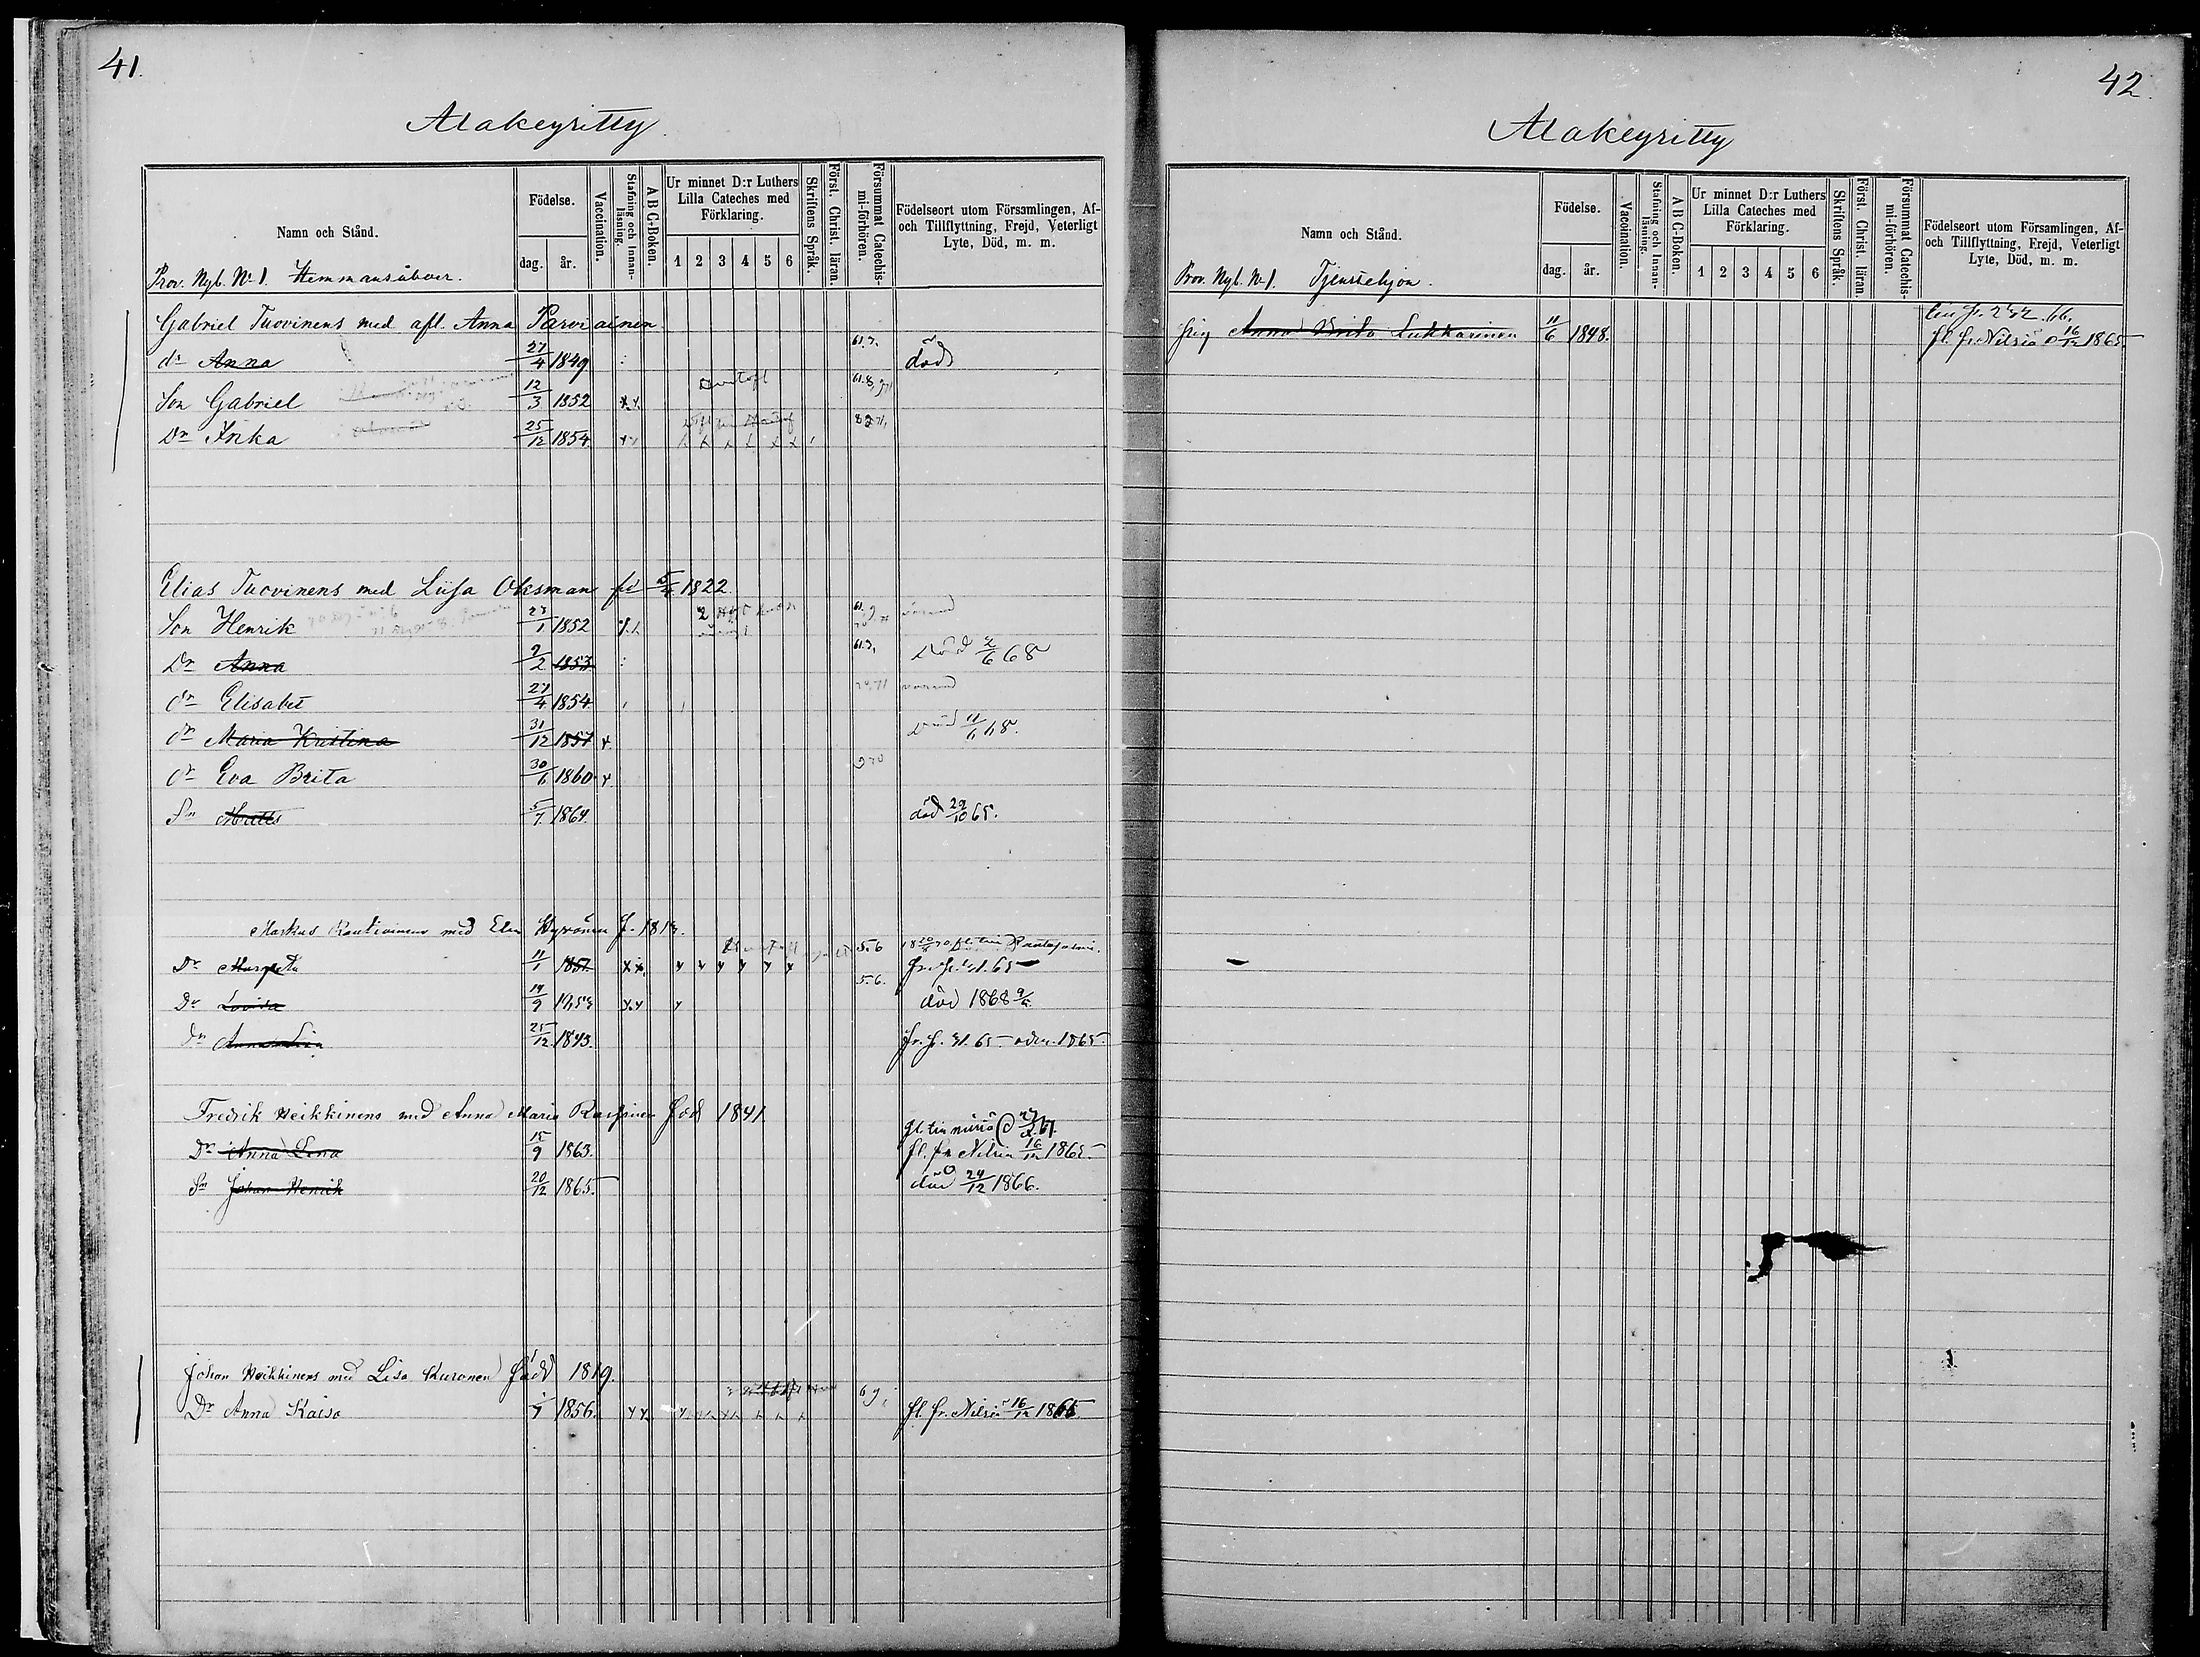 41.
Alakeyritty
Namn och Stånd.
Födelse.
dag. år.
Vaccination.
Stafning och Innan-läsning.
A B C-Boken.
Ur minnet D:r Luthers Lilla Cateches med Förklaring.
1 2 3 4 5 6
Skriftens Språk.
Först. Christ. läran.
Försummat Catechis-mi-förhören.
Födelseort utom Församlingen, Af- och Tillflyttning, Frejd, Veterligt Lyte, Död, m. m.
Prov. Nyb. No 1. Hemmansåboer.
Gabriel Tuovinens med afl. Anna Parviainen
dr Anna 27/4 1849 61.7. död
Son Gabriel 12/3 1852 x x
Dr Inka 25/12 1854 x x x x x x
Elias Tuovinens med Liisa Oksman fd 1822.
Son Henrik 23/1 1852
Dr Anna 9/2 1853 61.7. Död 2/6 68
dr Elisabet 27/4 1854
dr Maria Kristina 31/12 1857 x Död 11/6 68.
dr Eva Brita 30/6 1860 x
Sn Matts 5/7 1864. död 29/10 65.
Markus Rautiainens med Elin Hyvönen f. 1813.
5.6
Dr Margreta 11/1 1851 x x x x x x x x
5.6.
Dr Lovisa 14/9 1853 x x x död 1868
dr Anna Lisa 25/12 1843.
Fredrik Heikkinens med Anna Maria född 1841
Dr Anna Lena 15/9 1863. fl. fr. Nilsiä 16/12 1865
Sn Johan Henrik 20/12 1865. död 24/12 1866.
Johan Heikkinens med Lisa Kuronen född 1819.
Dr Anna Kaisa 1/7 1856. x x fl. fr. Nilsiä 16/12 1865
42.
Alakeyritty
Namn och Stånd.
Födelse.
dag. år.
Vaccination.
Stafning och Innan-läsning.
A B C-Boken.
Ur minnet D:r Luthers Lilla Cateches med Förklaring.
1 2 3 4 5 6
Skriftens Språk.
Först. Christ. läran.
Försummat Catechis-mi-förhören.
Födelseort utom Församlingen, Af- och Tillflyttning, Frejd, Veterligt Lyte, Död, m. m.
Prov. Nyb. No 1. Tjenstehjon.
pig Anna Brita Lukkarinen 11/6 1848. fl. fr. Nilsiä 16/12 1865